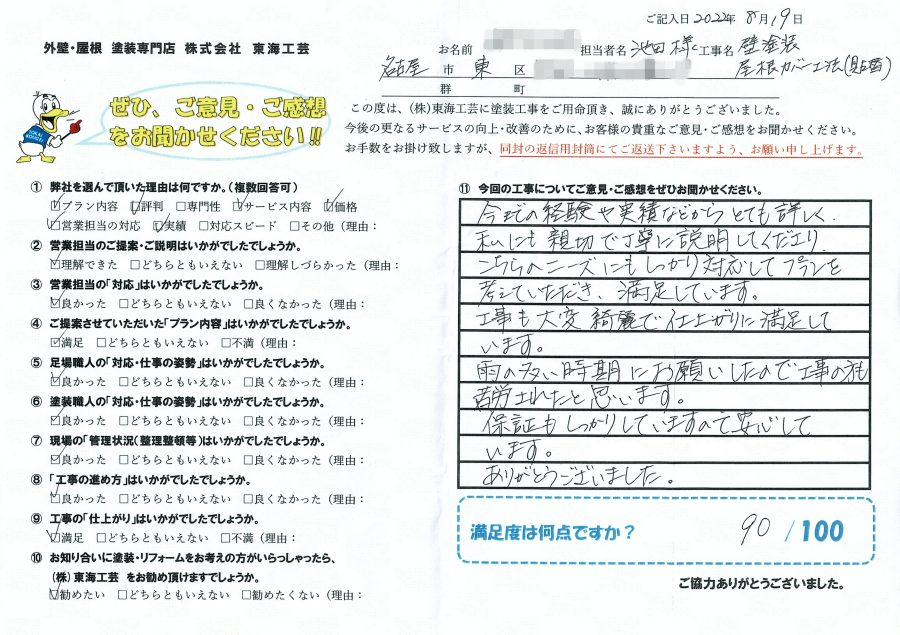 ご記入日 2022年 8月19日
外壁・屋根 塗装専門店 株式会社 東海工芸
お名前 担当者名 池田様 工事名 壁塗装
名古屋 市 東 区 屋根カバー工法(見占首)
群 町
ぜひ、ご意見・ご感想
をお聞かせください!!
この度は、(株)東海工芸に塗装工事をご用命頂き、誠にありがとうございました。
今後の更なるサービスの向上・改善のために、お客様の貴重なご意見・ご感想をお聞かせください。
お手数をお掛け致しますが、同封の返信用封筒にてご返送下さいますよう、お願い申し上げます。
① 弊社を選んで頂いた理由は何ですか。(複数回答可)
☑プラン内容 ☑評判 □専門性 ☑サービス内容 ☑価格
☑営業担当の対応 ☑実績 □対応スピード □その他(理由:
② 営業担当のご提案・ご説明はいかがでしたでしょうか。
☑理解できた □どちらともいえない □理解しづらかった(理由:
③ 営業担当の「対応」はいかがでしたでしょうか。
☑良かった □どちらともいえない □良くなかった(理由:
④ ご提案させていただいた「プラン内容」はいかがでしたでしょうか。
☑満足 □どちらともいえない □不満(理由:
⑤ 足場職人の「対応・仕事の姿勢」はいかがでしたでしょうか。
☑良かった □どちらともいえない □良くなかった(理由:
⑥ 塗装職人の「対応・仕事の姿勢」はいかがでしたでしょうか。
☑良かった □どちらともいえない □良くなかった(理由:
⑦ 現場の「管理状況(整理整頓等)はいかがでしたでしょうか。
☑良かった □どちらともいえない □良くなかった(理由:
⑧ 「工事の進め方」はいかがでしたでしょうか。
☑良かった □どちらともいえない □良くなかった(理由:
⑨ 工事の「仕上がり」はいかがでしたでしょうか。
☑満足 □どちらともいえない □不満(理由:
⑩ お知り合いに塗装・リフォームをお考えの方がいらっしゃったら、
(株)東海工芸 をお勧め頂けますでしょうか。
☑勧めたい □どちらともいえない □勧めたくない(理由:
⑪ 今回の工事についてご意見・ご感想をぜひお聞かせください。
今までの経験や実績などからとても詳しく、
私にも親切で丁寧に説明してくださり、
こちらのニーズにもしっかり対応してプランを
考えていただき、満足しています。
工事も大変綺麗で仕上がりに満足して
います。
雨の多い時期にお願いしたので工事の方も
苦労されたと思います。
保証もしっかりしていますので安心して
います。
ありがとうございました。
満足度は何点ですか? 90 /100
ご協力ありがとうございました。